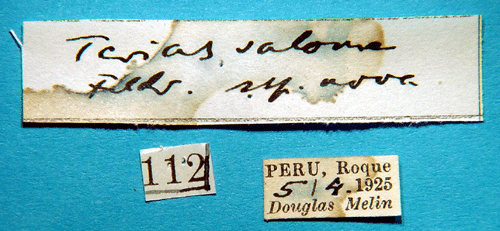 Terias salome
Feldr. ssp. nova
112
PERU, Roque
5/4.1925
Douglas Melin